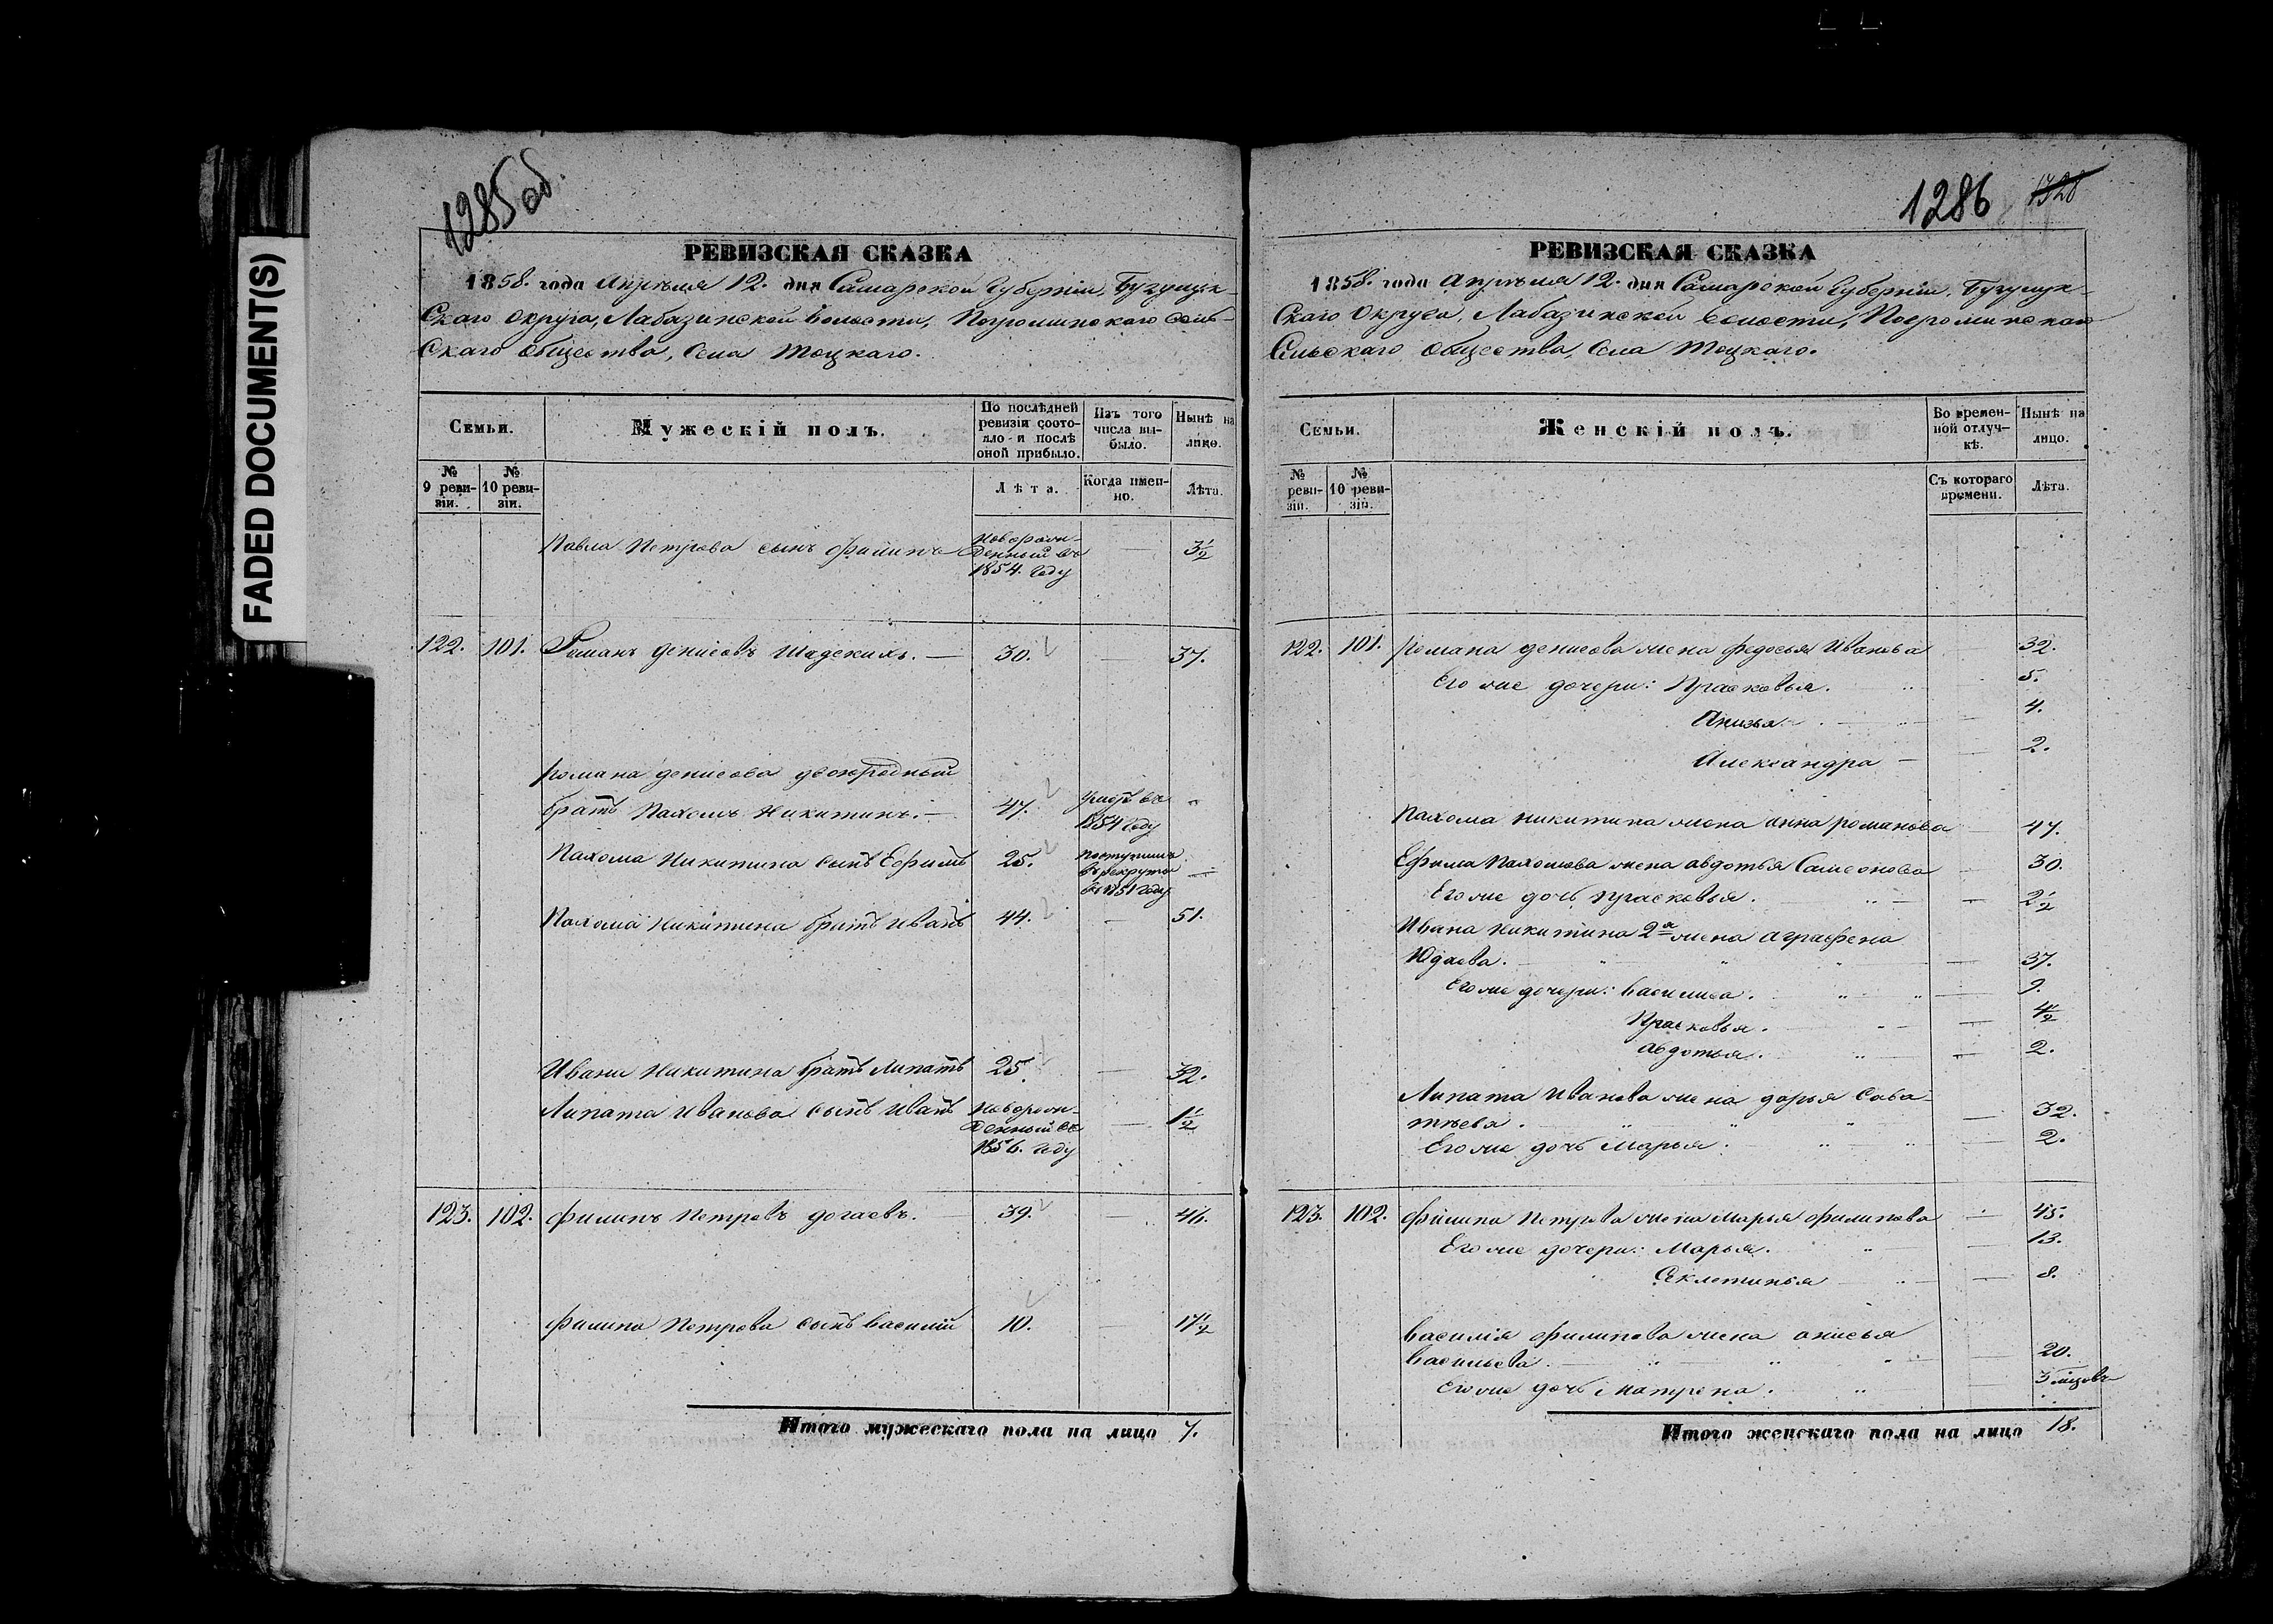 FADED DOCUMENT(S)
1285об.
РЕВИЗСКАЯ СКАЗКА
1858. года Апрѣля 12. дня Самарской Губерніи, Бузулук-
скаго Округа, Лабазинской волости, Погроминскаго Сель-
скаго общества, Села Тоцкаго.
Семьи.
Мужескій полъ.
По послѣдней ревизіи состо-
яло и послѣ оной прибыло.
Изъ того числа вы-
было.
Нынѣ на лицо.
№ 9 реви-
зіи.
№ 10 реви-
зіи.
Лѣта.
Когда имен-
но.
Лѣта.
Павла Петрова сынъ Филипъ новорож-
денный въ 1854. году — 3½
122. 101. Романъ Денисовъ Шадскихъ. — 30. — 37.
Романа Денисова двоюродный
братъ Пахомъ Никитинъ. — 47. умеръ въ 1854 году "
Пахома Никитина сынъ Ефимъ 25. поступилъ въ рекруты въ 1851 году —
Пахома Никитина братъ Иванъ 44. — 51.
Ивана Никитина братъ Липатъ 25. — 32.
Липата Иванова сынъ Иванъ новорож-
денный въ 1856. году — 1½
123. 102. Филипъ Петровъ Догаевъ. 39. — 46.
Филипа Петрова сынъ Василій 10. — 17½
Итого мужескаго пола на лицо 7.
1286 1328
РЕВИЗСКАЯ СКАЗКА
1858. года Апрѣля 12. дня Самарской Губерніи, Бузулук-
скаго Округа, Лабазинской волости, Погроминскаго
Сельскаго общества, Села Тоцкаго.
Семьи.
Женскій полъ.
Во времен-
ной отлуч-
кѣ.
Нынѣ на лицо.
№ реви-
зіи.
№ 10 реви-
зіи.
Съ котораго времени.
Лѣта.
122. 101. Романа Денисова жена Федосья Иванова 32.
Его же дочери: Прасковья. 5.
Анисья. 4.
Александра — 2.
Пахома Никитина жена Анна Романова — 47.
Ефима Пахомова жена Авдотья Самсонова — 30.
Его же дочь Прасковья. — 2½
Ивана Никитина 2я жена Аграфена
Юдаева. — 37.
Его же дочери: Василиса. — 9.
Прасковья. — 4½
Авдотья. — 2.
Липата Иванова жена Дарья Сава-
тѣева. — 32.
Его же дочь Марья. — 2.
123. 102. Филипа Петрова жена Марья Филипова — 45.
Его же дочери: Марья. — 13.
Секлетинья — 8.
Василія Филипова жена Анисья
Васильева. — 20.
Его же дочь Матрена. 3 мцовъ
Итого женскаго пола на лицо 18.